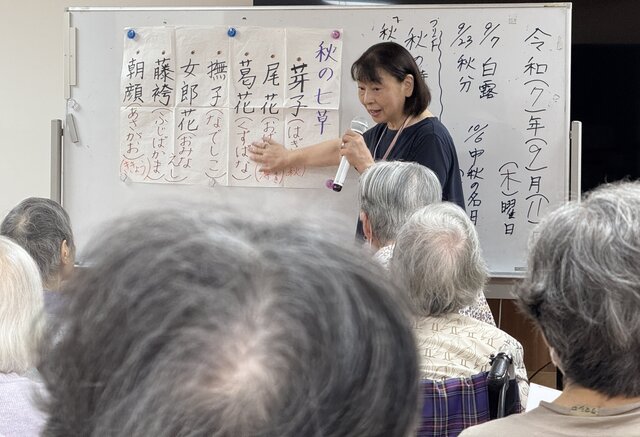 令和(7)年(9)月(11)
(木)曜日
9/7 白露
9/23 秋分
10/6 中秋の名月
秋の七草
芽子(はぎ)
尾花
葛花(くずばな
撫子(なでしこ
女郎花
藤袴(ふじばかま
朝顔(あさがお)